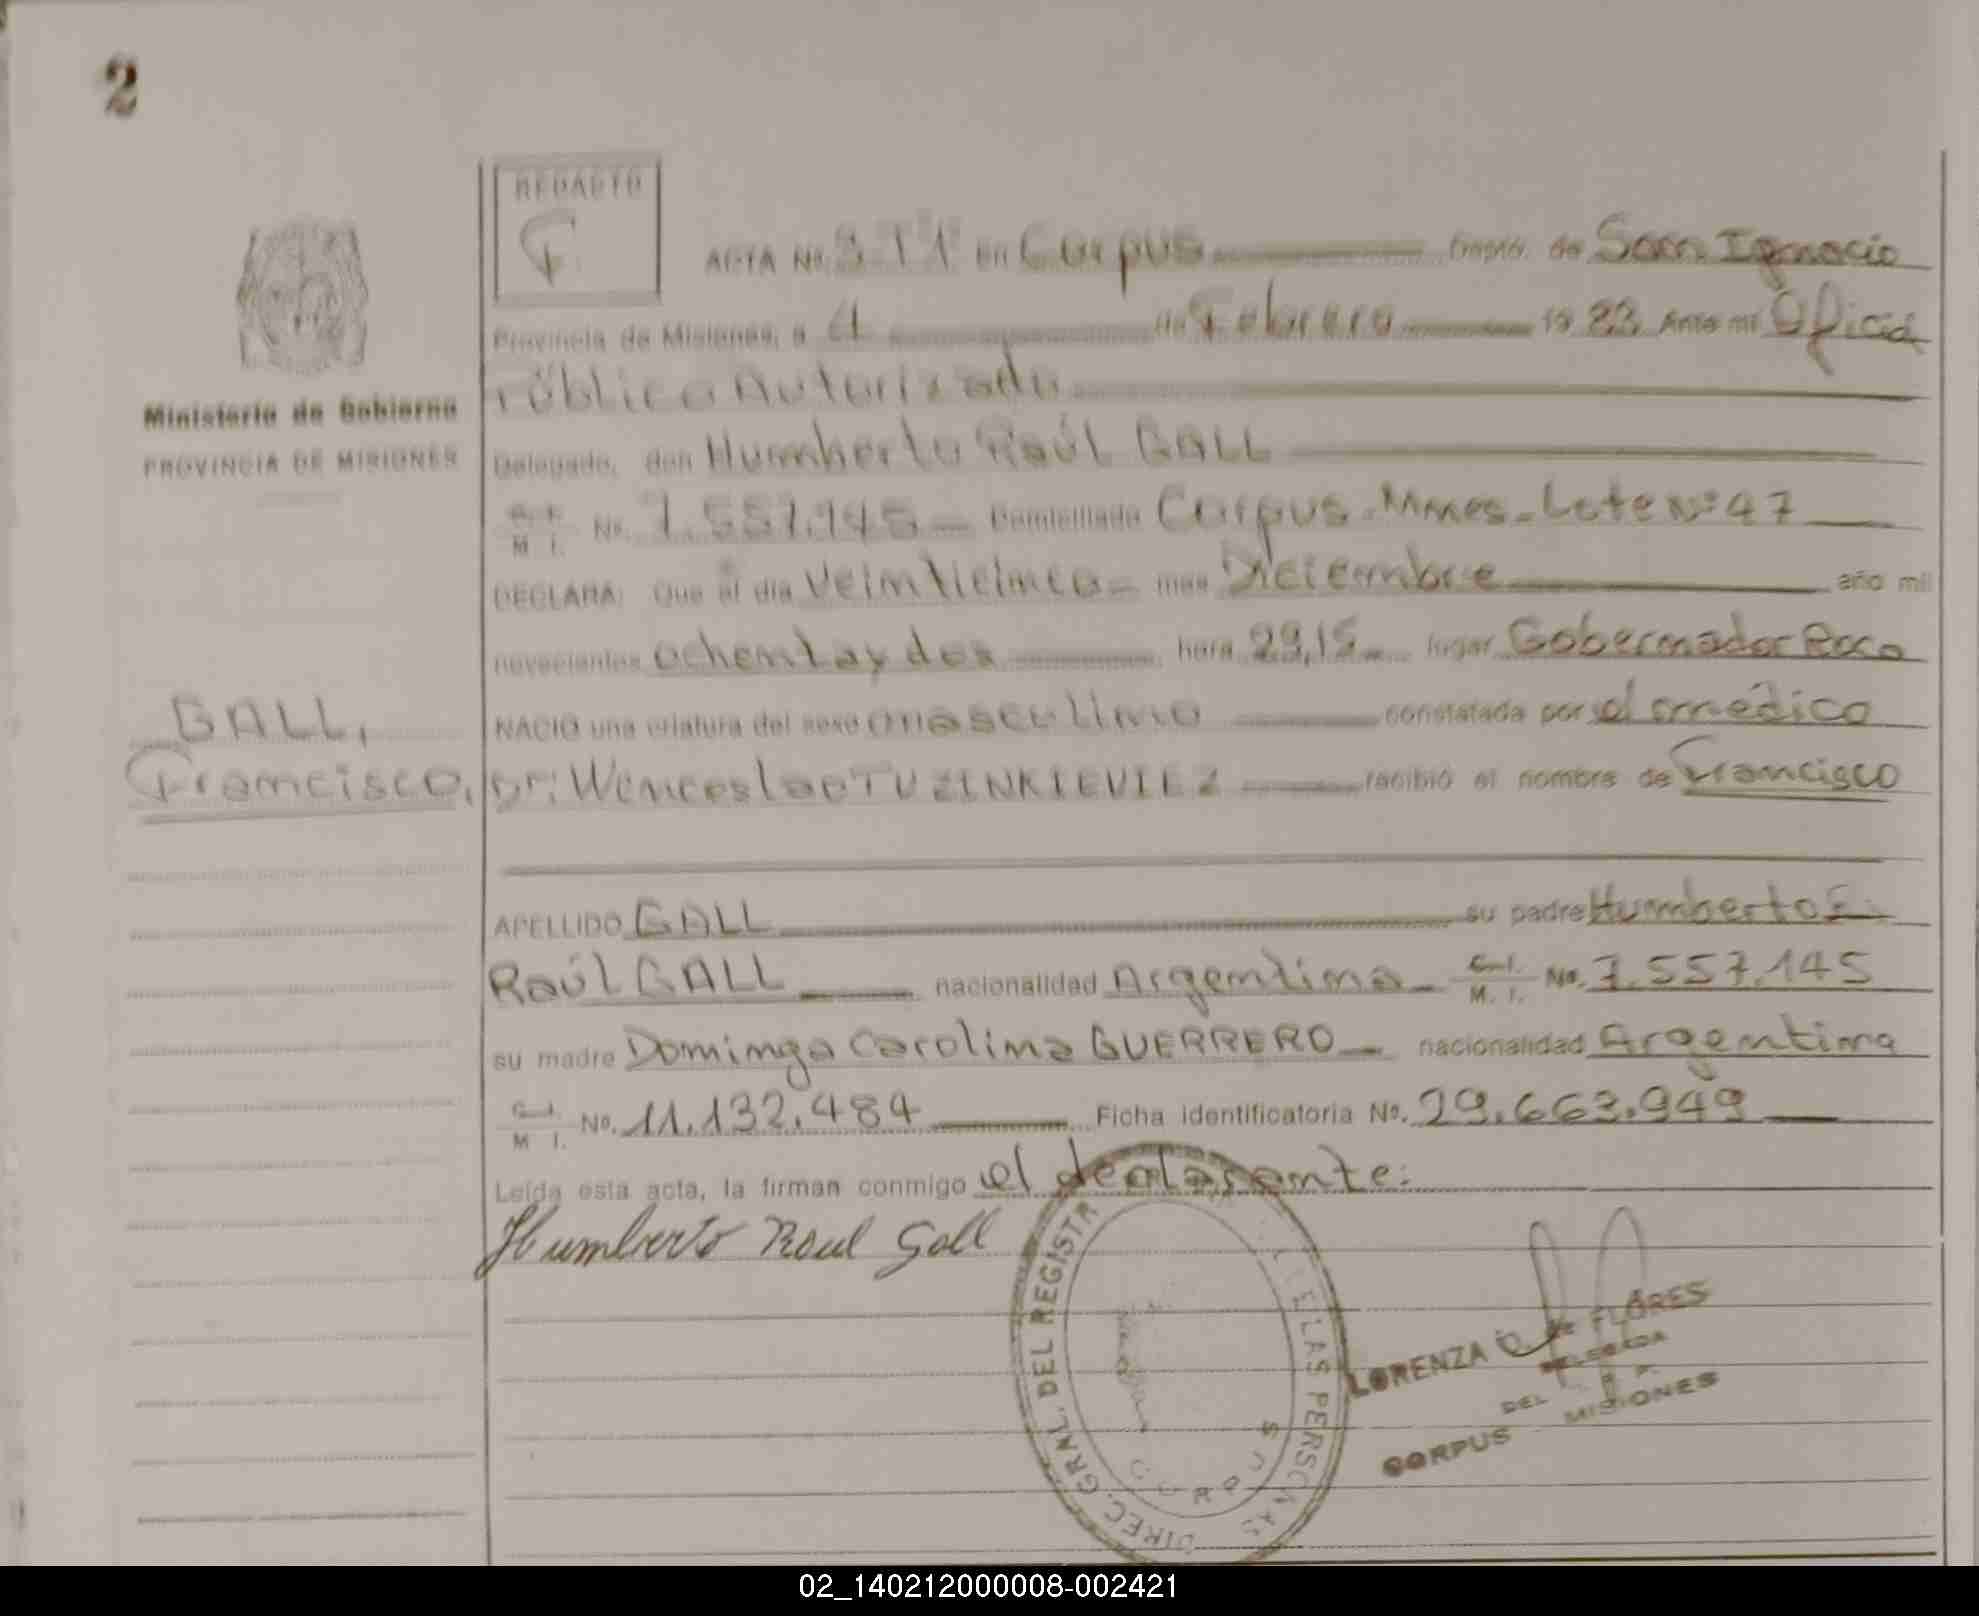 2
REDACTO
ACTA No. 3 T 1 en Corpus Dapto. de San Ignacio
Provincia de Misiones, a 4 de Febrero 19 83 Ante mí Oficial
Público Autorizado
Ministerio de Gobierno
PROVINCIA DE MISIONES
Delegado, don Humberto Raúl GALL
C. I. M. I. No. 7.557.145 Domiciliado Corpus - Mnes - Lote Nº 47
DECLARA: Que el día Veinticinco mes Diciembre año mil
novecientos ochenta y dos hora 23,15 lugar Gobernador Roca
GALL,
Francisco.
NACIO una criatura del sexo masculino constatada por el médico
Dr: Wenceslao TUZINKIEVIEZ recibió el nombre de Francisco
APELLIDO GALL su padre Humberto
Raúl GALL nacionalidad Argentina C. I. M. I. No. 7.557.145
su madre Dominga Carolina GUERRERO nacionalidad Argentina
C. I. M I. No. 11.132.484 Ficha identificatoria No. 29.663.949
Leída esta acta, la firman conmigo el declarante:
Humberto Raul Gall
DIREC. GRAL. DEL REGISTR DE LAS PERSONAS
CORPUS
LORENZA de FLORES
DELEGADA
DEL R. P.
CORPUS MISIONES
02_140212000008-002421